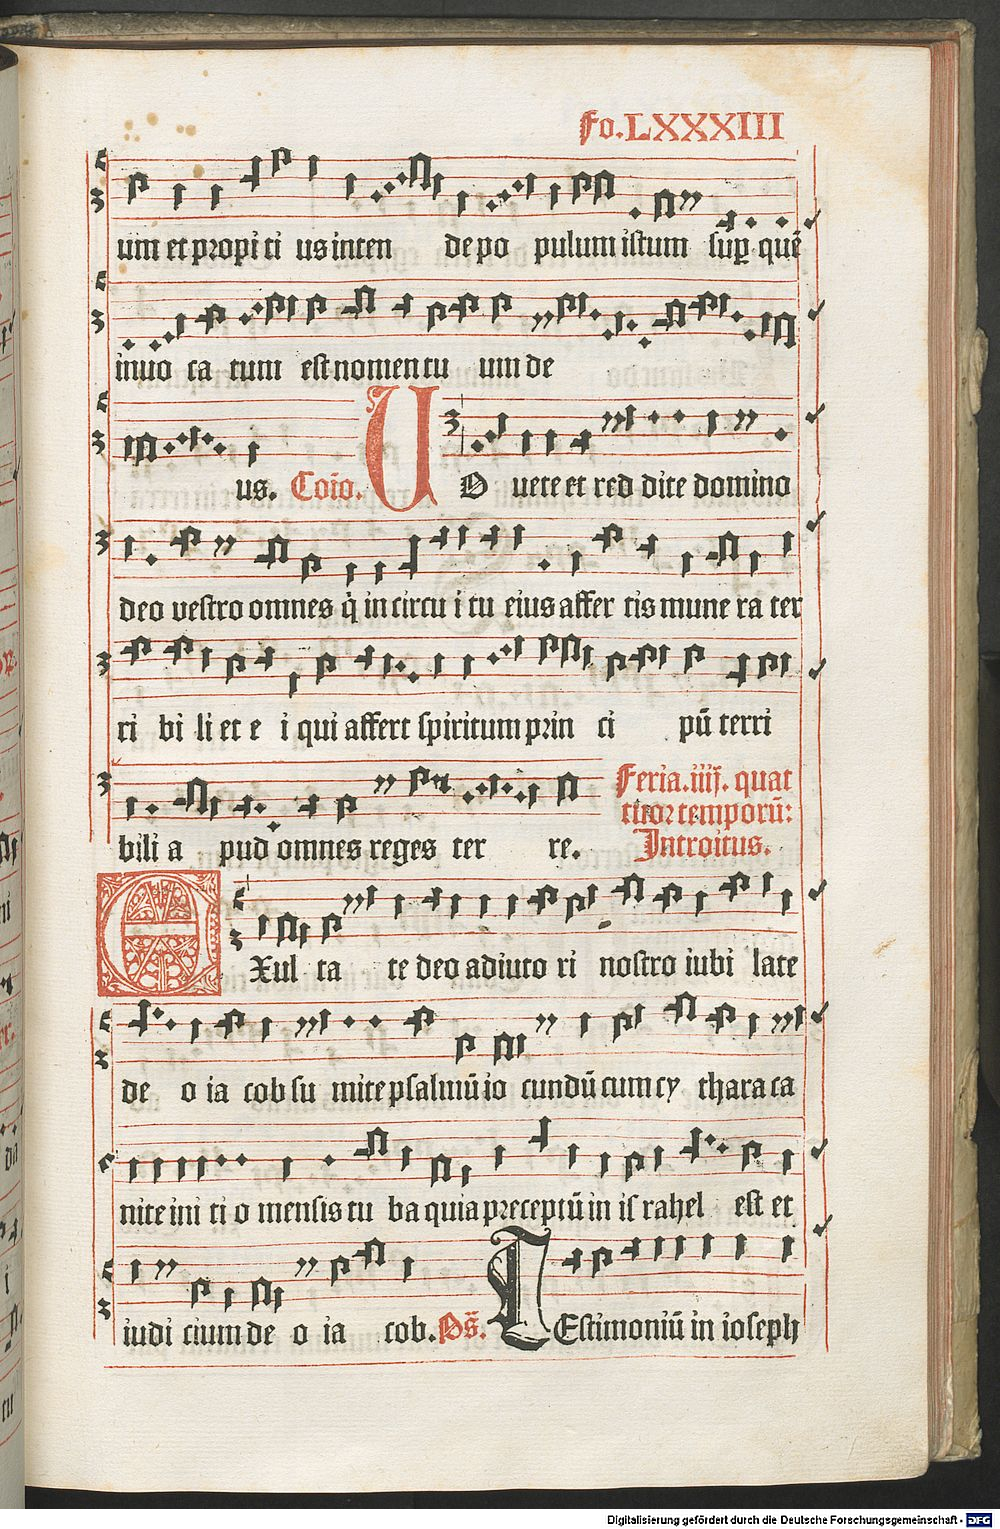 Fo.LXXXIII
um et propi ti us inten de po pulum istum sup̱ quē
inuo ca tum est nomen tu um de
us. Coīo. UO uete et red dite domino
deo vestro omnes q̇ in circu i tu eius affer tis mune ra ter
ri bi li et e i qui affert spiritum prin ci pū terri
bili a pud omnes reges ter re.
Feria.iiij. quat
tuor temporū:
Introitus.
EXul ta te deo adiuto ri nostro iubi late
de o ia cob su mite psalmū io cundū cum cy thara ca
nite ini ti o mensis tu ba quia preceptū in is rahel est et
iudi cium de o ia cob. Ps̄. TEstimoniū in ioseph
Digitalisierung gefördert durch die Deutsche Forschungsgemeinschaft - DFG